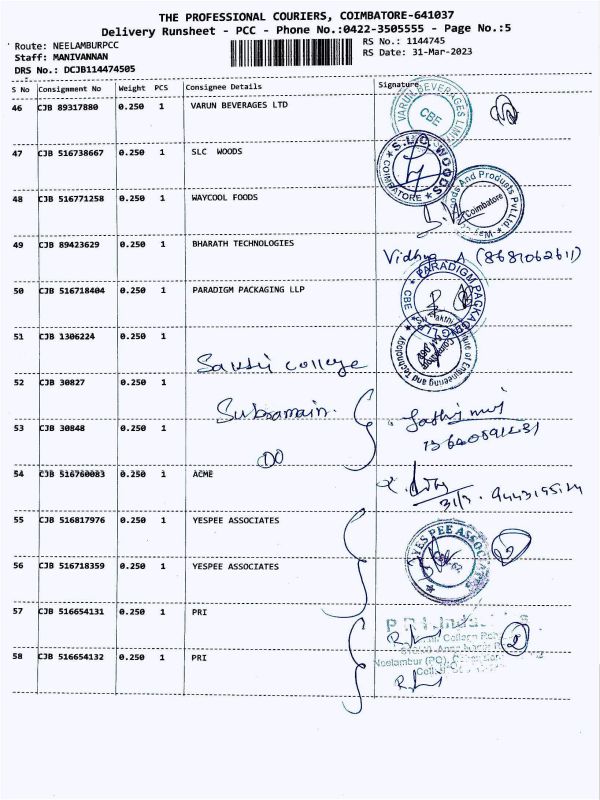 THE PROFESSIONAL COURIERS, COIMBATORE-641037
Delivery Runsheet - PCC - Phone No.:0422-3505555 - Page No.:5
Route: NEELAMBURPCC
RS No.: 1144745
Staff: MANIVANNAN
RS Date: 31-Mar-2023
DRS No.: DCJB114474505
S No Consignment No Weight PCS Consignee Details Signature
46 CJB 89317880 0.250 1 VARUN BEVERAGES LTD
VARUN BEVERAGES LIMI
CBE
47 CJB 516738667 0.250 1 SLC WOODS
S.L.C. WOODS
COIMBATORE
48 CJB 516771258 0.250 1 WAYCOOL FOODS
oods And Products Pvt.Ltd
Coimbatore
49 CJB 89423629 0.250 1 BHARATH TECHNOLOGIES
Vidhya A (8681062611)
50 CJB 516718404 0.250 1 PARADIGM PACKAGING LLP
PARADIGM PACKAGING LLP
CBE
51 CJB 1306224 0.250 1
Sakthi College
of Engineering and Technology
52 CJB 30827 0.250 1
Subramain.
53 CJB 30848 0.250 1
DO
54 CJB 516760083 0.250 1 ACME
31/3. 9443195124
55 CJB 516817976 0.250 1 YESPEE ASSOCIATES
YES PEE ASSOCIATES
56 CJB 516718359 0.250 1 YESPEE ASSOCIATES
2
57 CJB 516654131 0.250 1 PRI
P R I Indus
2
58 CJB 516654132 0.250 1 PRI
Neelambur (PO),